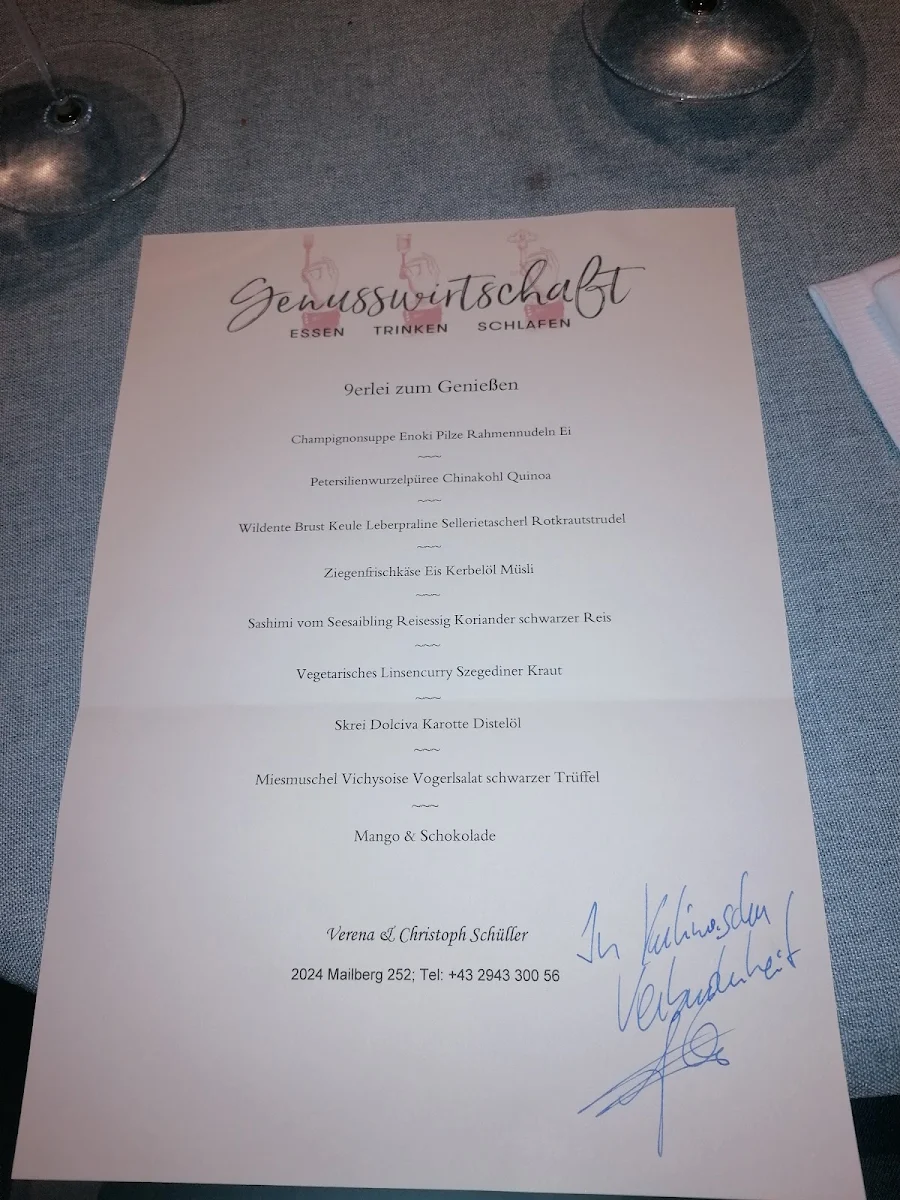 Genusswirtschaft
ESSEN TRINKEN SCHLAFEN
9erlei zum Genießen
Champignonsuppe Enoki Pilze Rahmennudeln Ei
~~~
Petersilienwurzelpüree Chinakohl Quinoa
~~~
Wildente Brust Keule Leberpraline Sellerietascherl Rotkrautstrudel
~~~
Ziegenfrischkäse Eis Kerbelöl Müsli
~~~
Sashimi vom Seesaibling Reisessig Koriander schwarzer Reis
~~~
Vegetarisches Linsencurry Szegediner Kraut
~~~
Skrei Dolciva Karotte Distelöl
~~~
Miesmuschel Vichysoise Vogerlsalat schwarzer Trüffel
~~~
Mango & Schokolade
Verena & Christoph Schüller
2024 Mailberg 252; Tel: +43 2943 300 56
In Kulinarischer
Verbundenheit